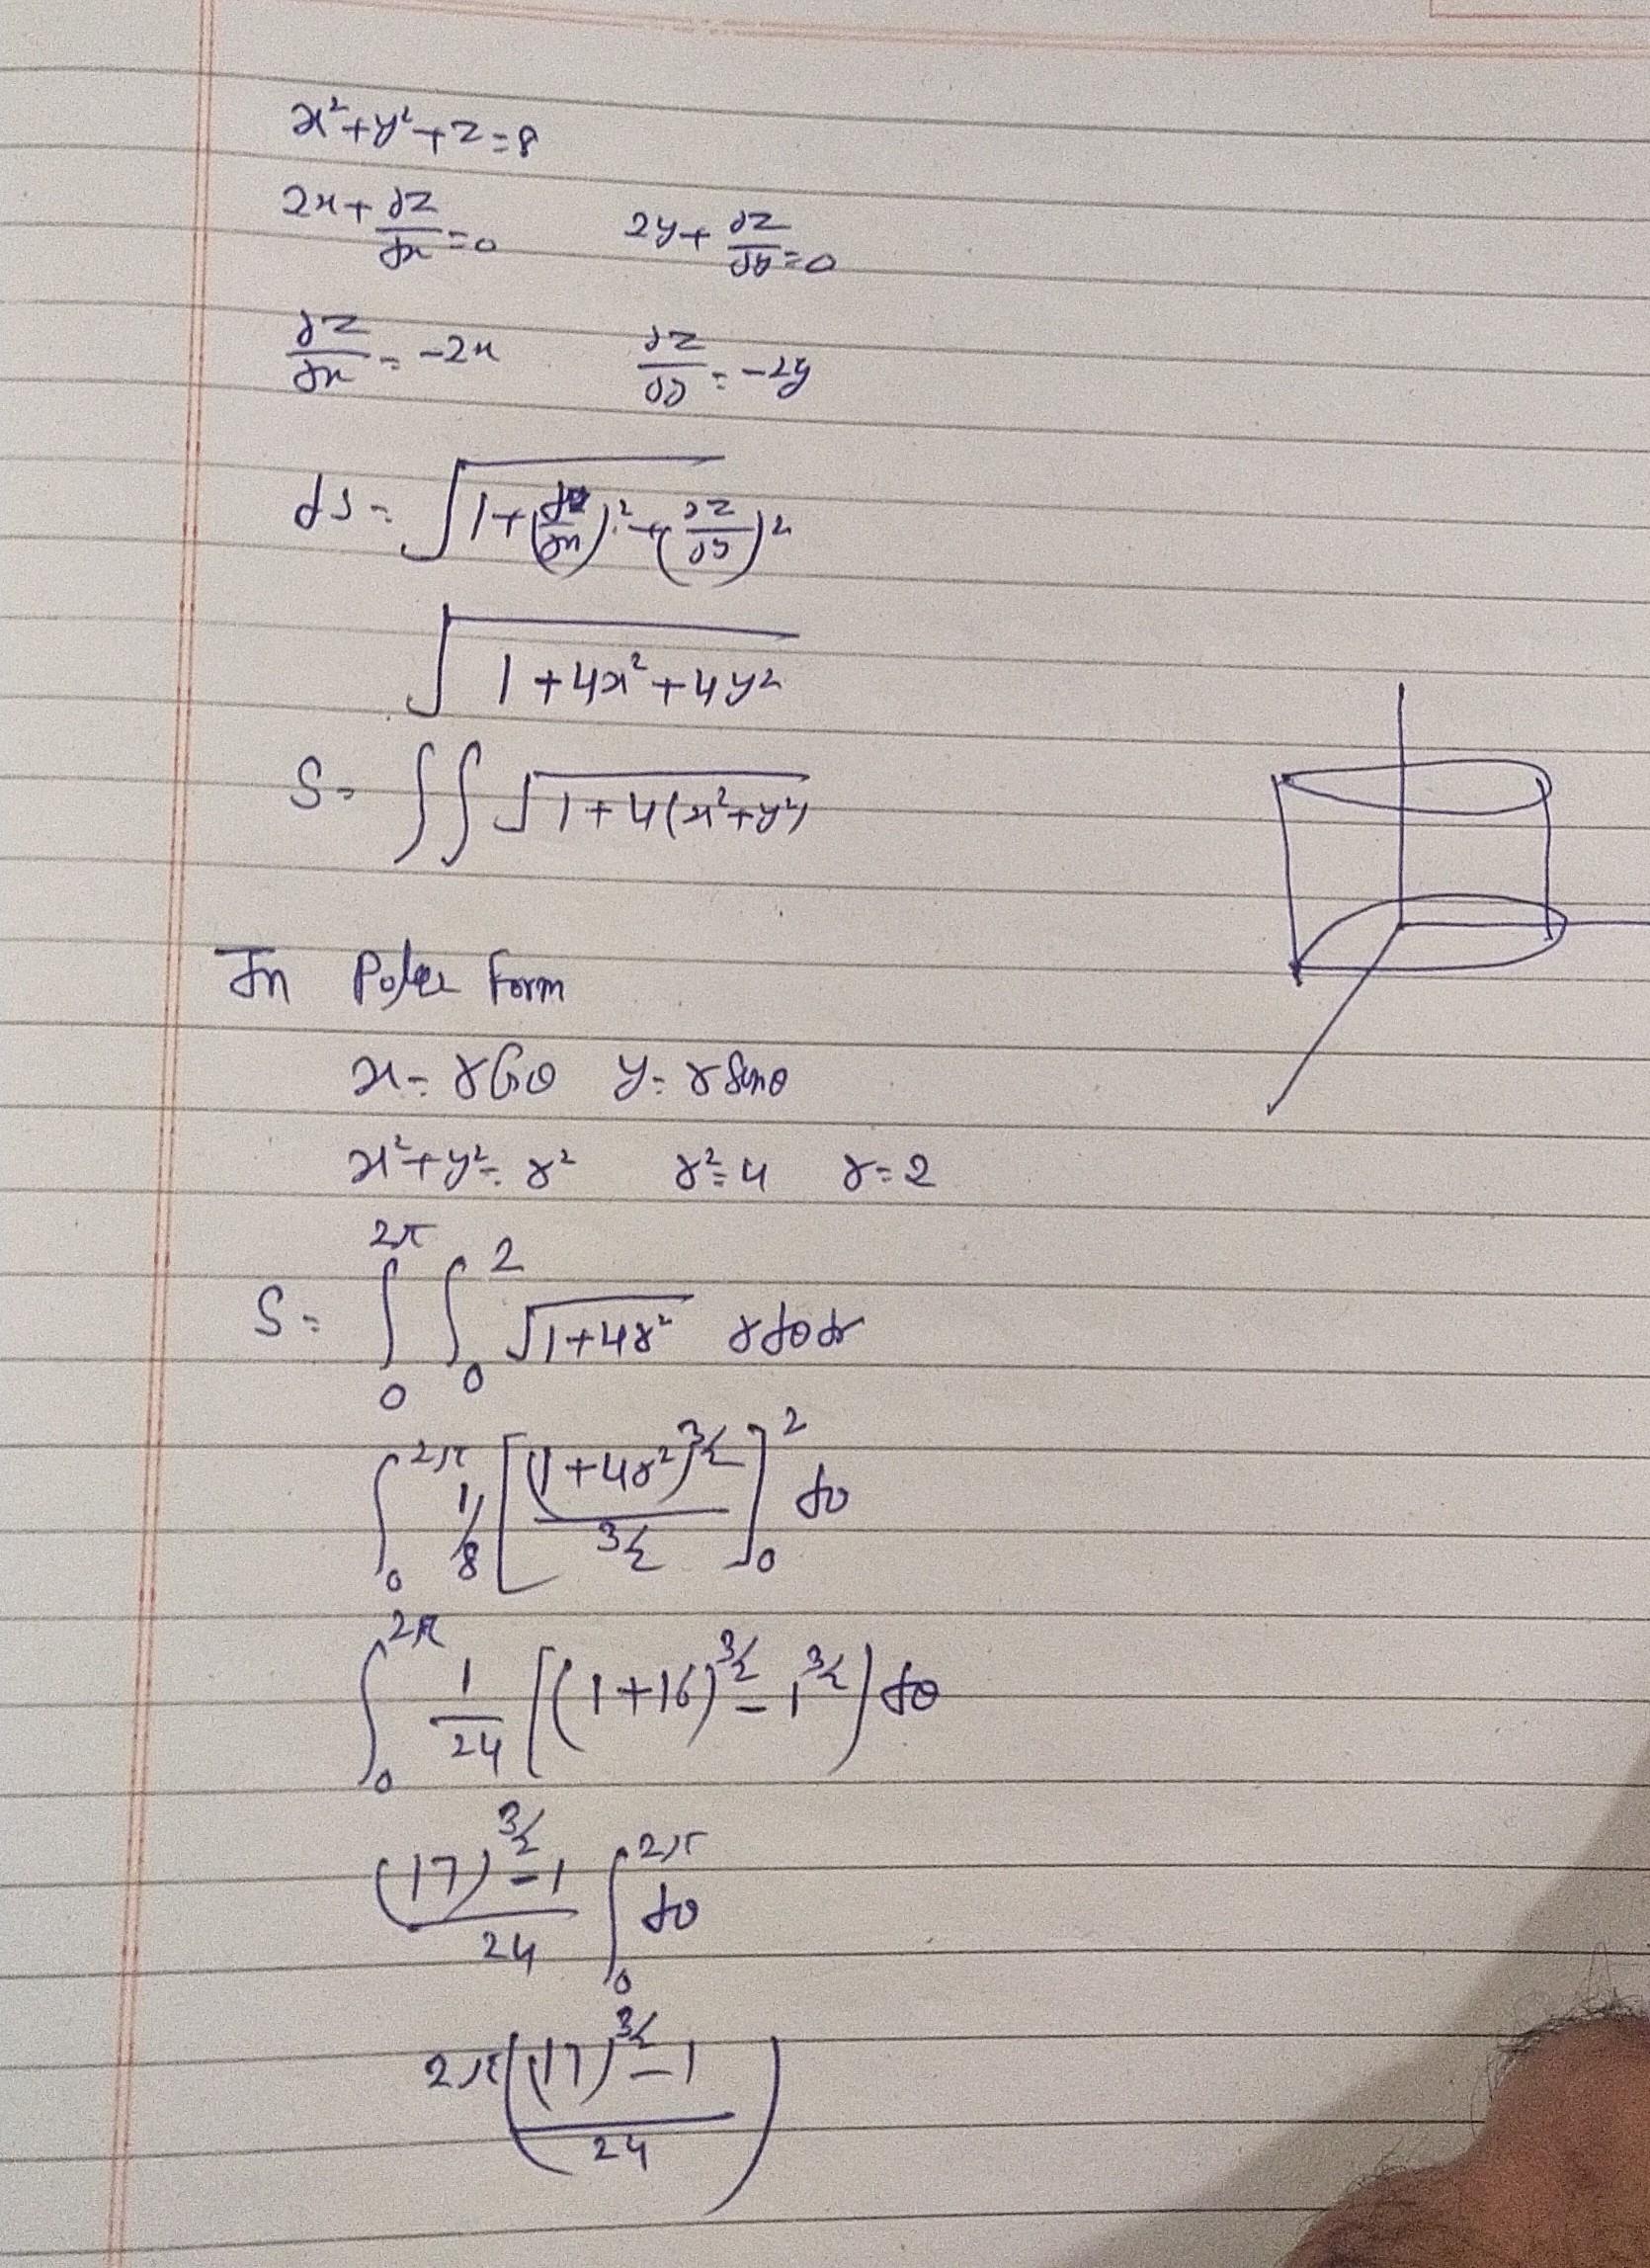 x²+y²+z=8
2x+∂z/∂x=0 2y+∂z/∂y=0
∂z/∂x=-2x ∂z/∂y=-2y
ds=√(1+(∂z/∂x)²+(∂z/∂y)²)
√(1+4x²+4y²)
S=∫∫√(1+4(x²+y²))
In Polar Form
x=rcosθ y=rsinθ
x²+y²=r² r²=4 r=2
S=∫₀^2π ∫₀^2 √(1+4r²) rdθdr
∫₀^2π 1/8[(1+4r²)^3/2 / 3/2]₀^2 dθ
∫₀^2π 1/24[(1+16)^3/2-1^3/2)dθ
(17)^3/2-1 / 24 ∫₀^2π dθ
2π((17)^3/2-1 / 24)